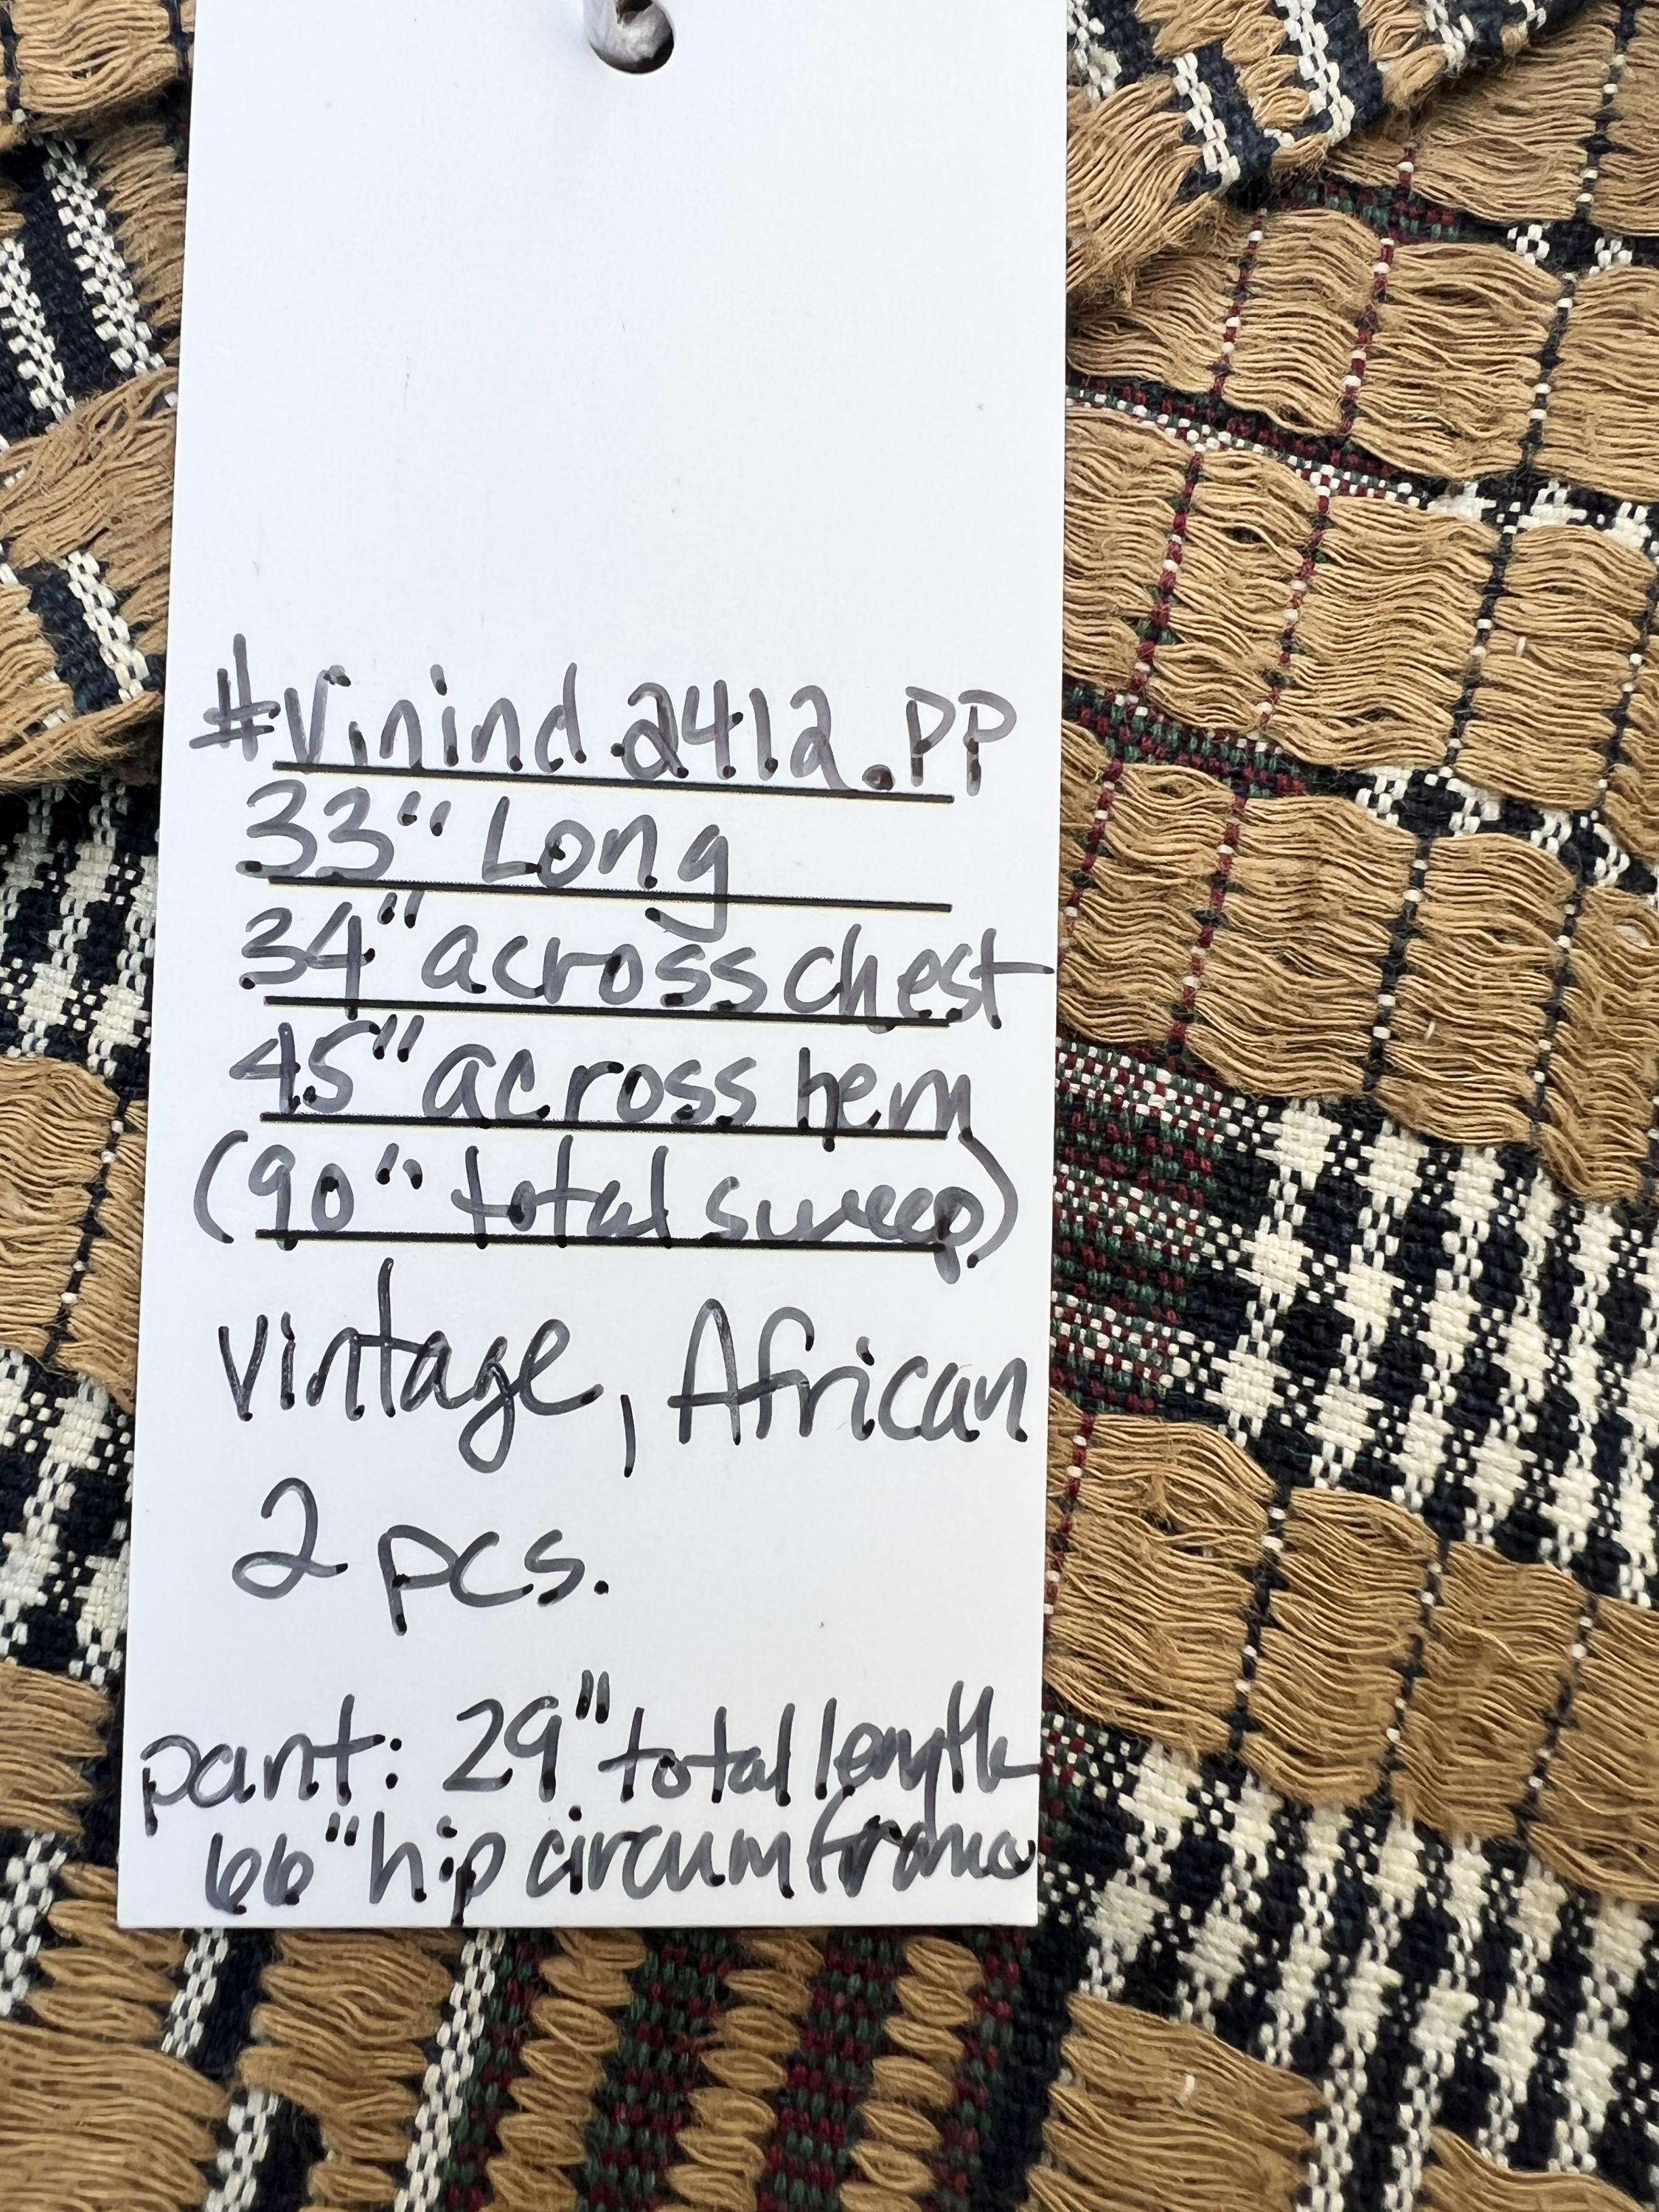 #Vinind.2412.PP
33" Long
34" across chest
45" across hem
(90" total sweep)
vintage, African
2 pcs.
pant: 29" total length
66" hip circumfrance